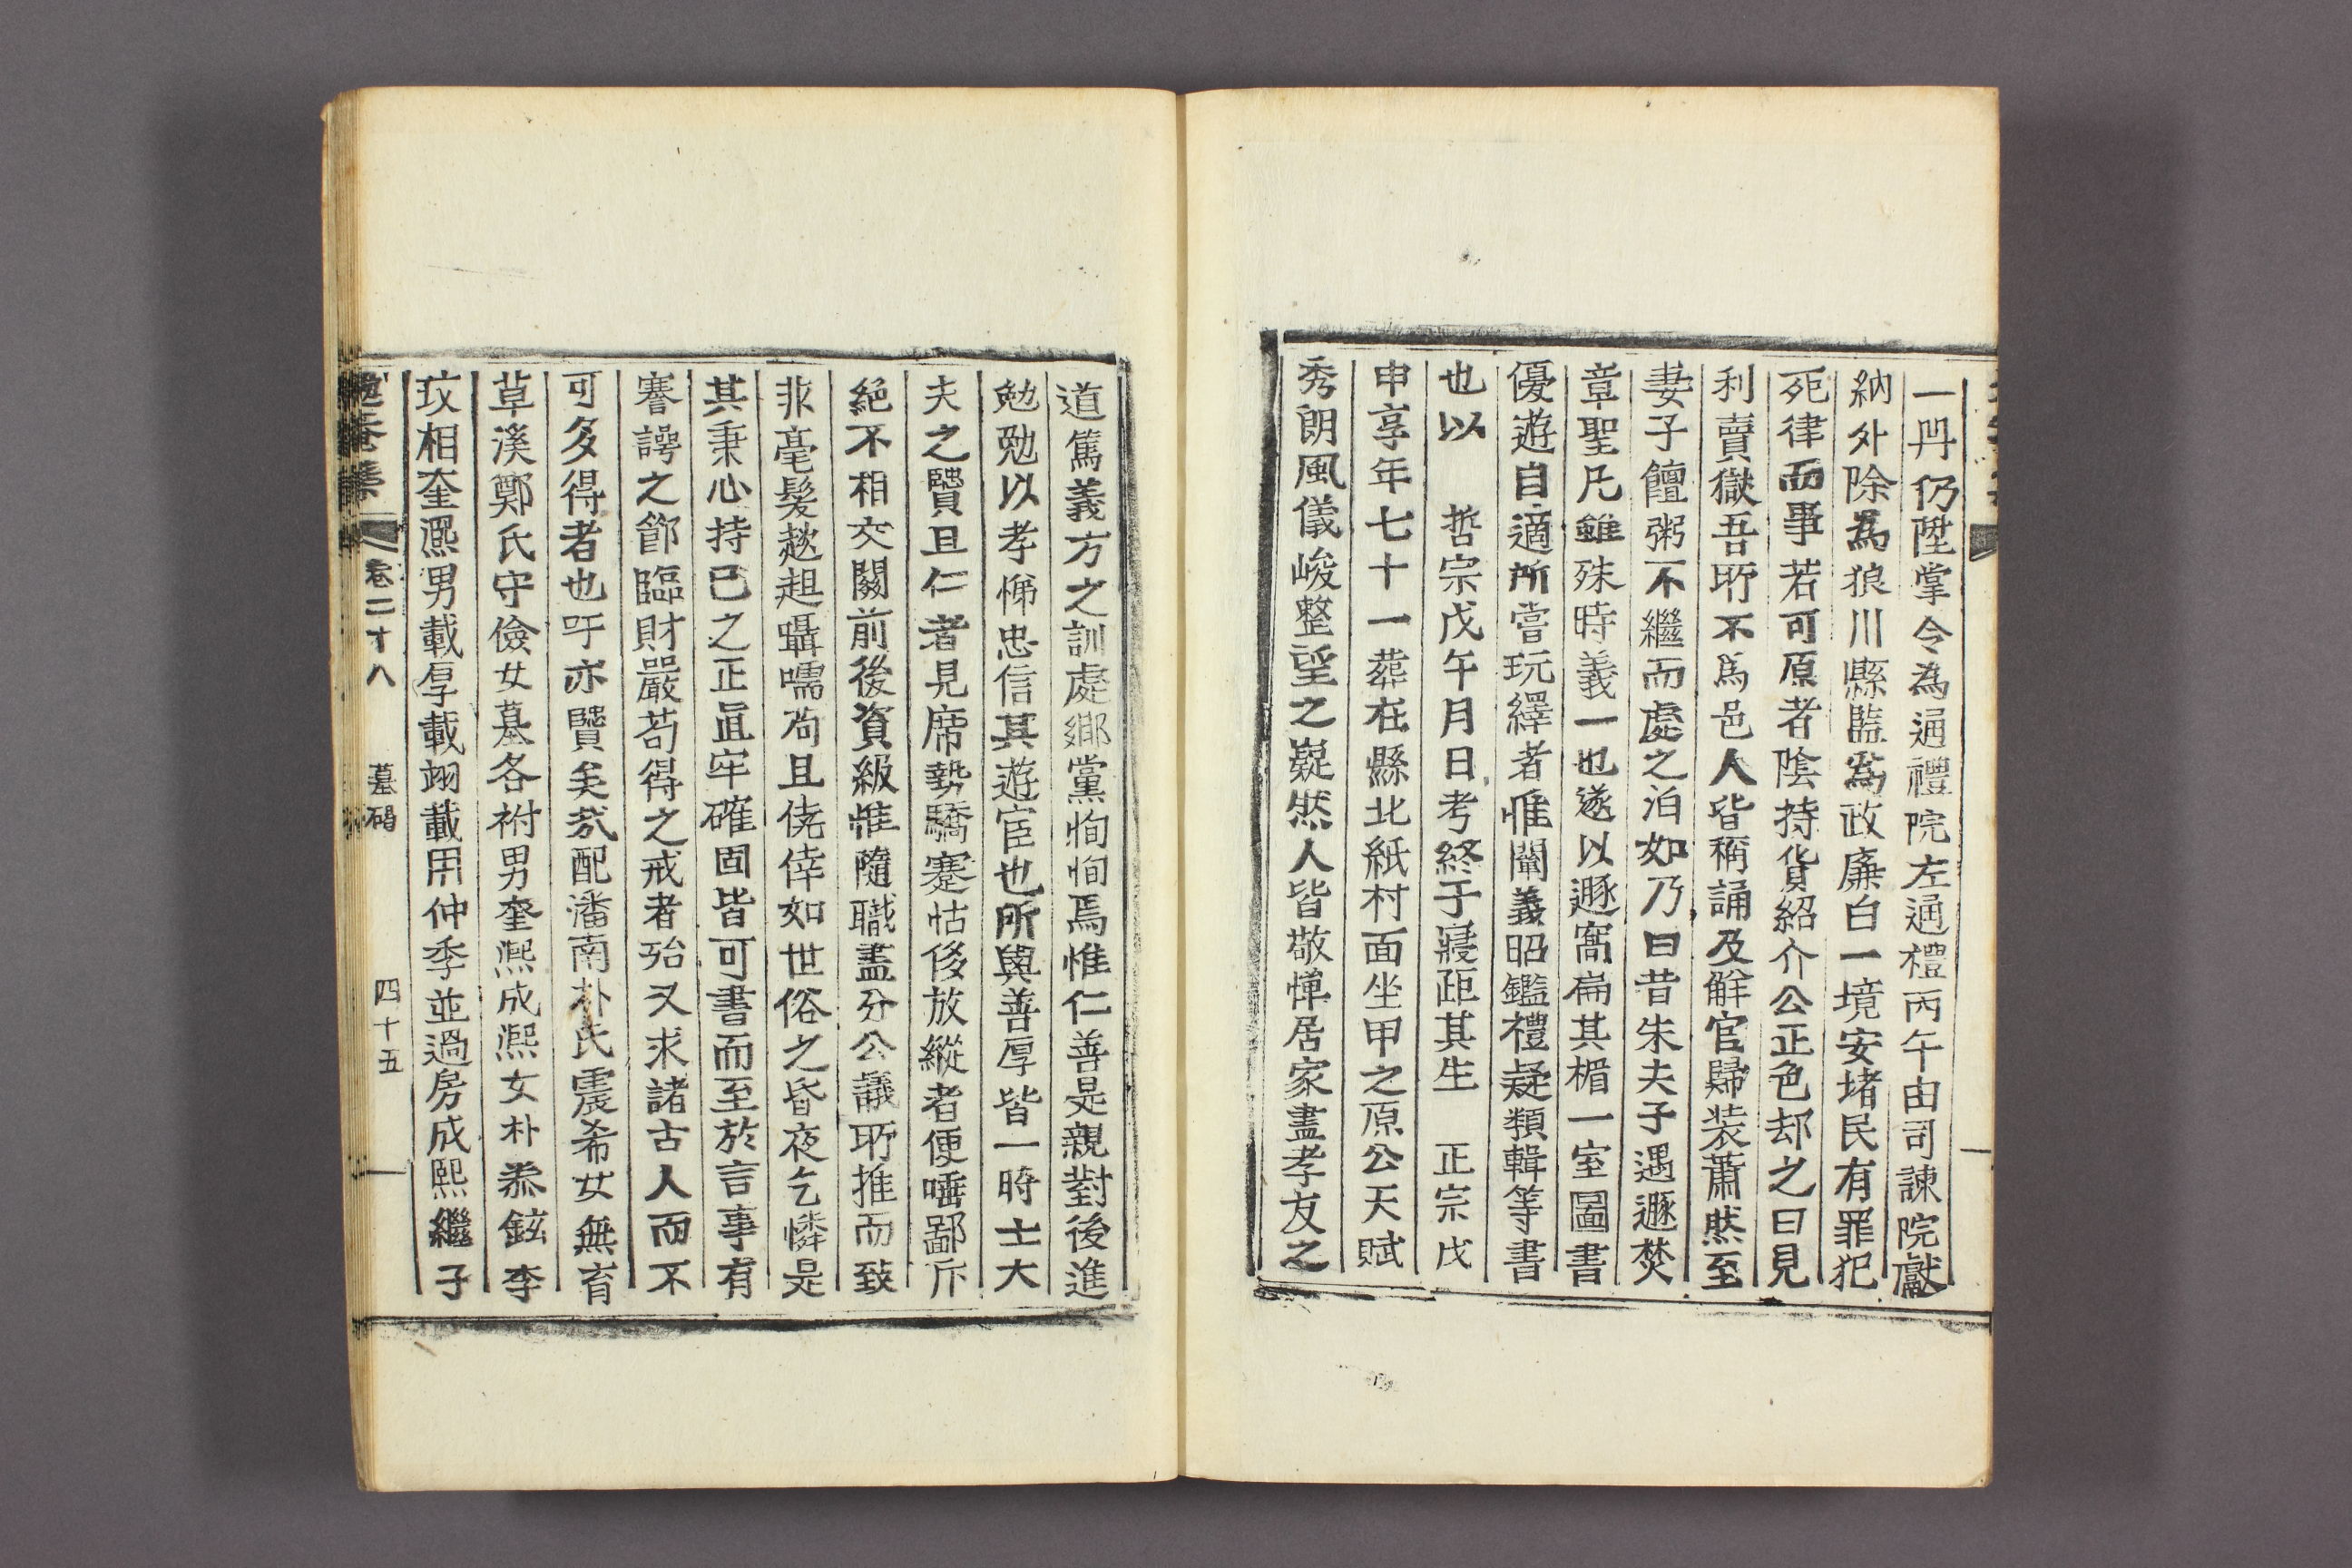 一丹仍陞掌令為通禮院左通禮丙午由司諫院獻
納外除爲狼川縣監爲政廉白一境安堵民有罪犯
死律而事若可原者陰持貨紹介公正色却之曰見
利賣獄吾所不爲邑人皆稱誦及解官歸装蕭然至
妻子饘粥不繼而處之泊如乃曰昔朱夫子遇遯焚
章聖凡雖殊時義一也遂以遯窩扁其楣一室圖書
優遊自適所嘗玩繹者惟闡義昭鑑禮疑類輯等書
也以 哲宗戊午月日考終于寢距其生 正宗戊
申享年七十一葬在縣北紙村面坐甲之原公天賦
秀朗風儀峻整望之嶷然人皆敬憚居家盡孝友之
道篤義方之訓處鄕黨恂恂焉惟仁善是親對後進
勉勉以孝悌忠信其遊宦也所與善厚皆一時士大
夫之賢且仁者見席勢驕蹇怙侈放縱者便唾鄙斥
絕不相交關前後資級惟隨職盡分公議所推而致
非毫髮趑趄囁嚅苟且僥倖如世俗之昏夜乞憐是
其秉心持己之正直牢確固皆可書而至於言事有
謇諤之節臨財嚴苟得之戒者殆又求諸古人而不
可多得者也吁亦賢矣哉配潘南朴氏震希女無育
草溪鄭氏守儉女墓各祔男奎熙成熙女朴泰鉉李
玟相奎熙男載厚載翊載用仲季並過房成熙繼子
勉菴集 卷二十八 墓碣 四十五